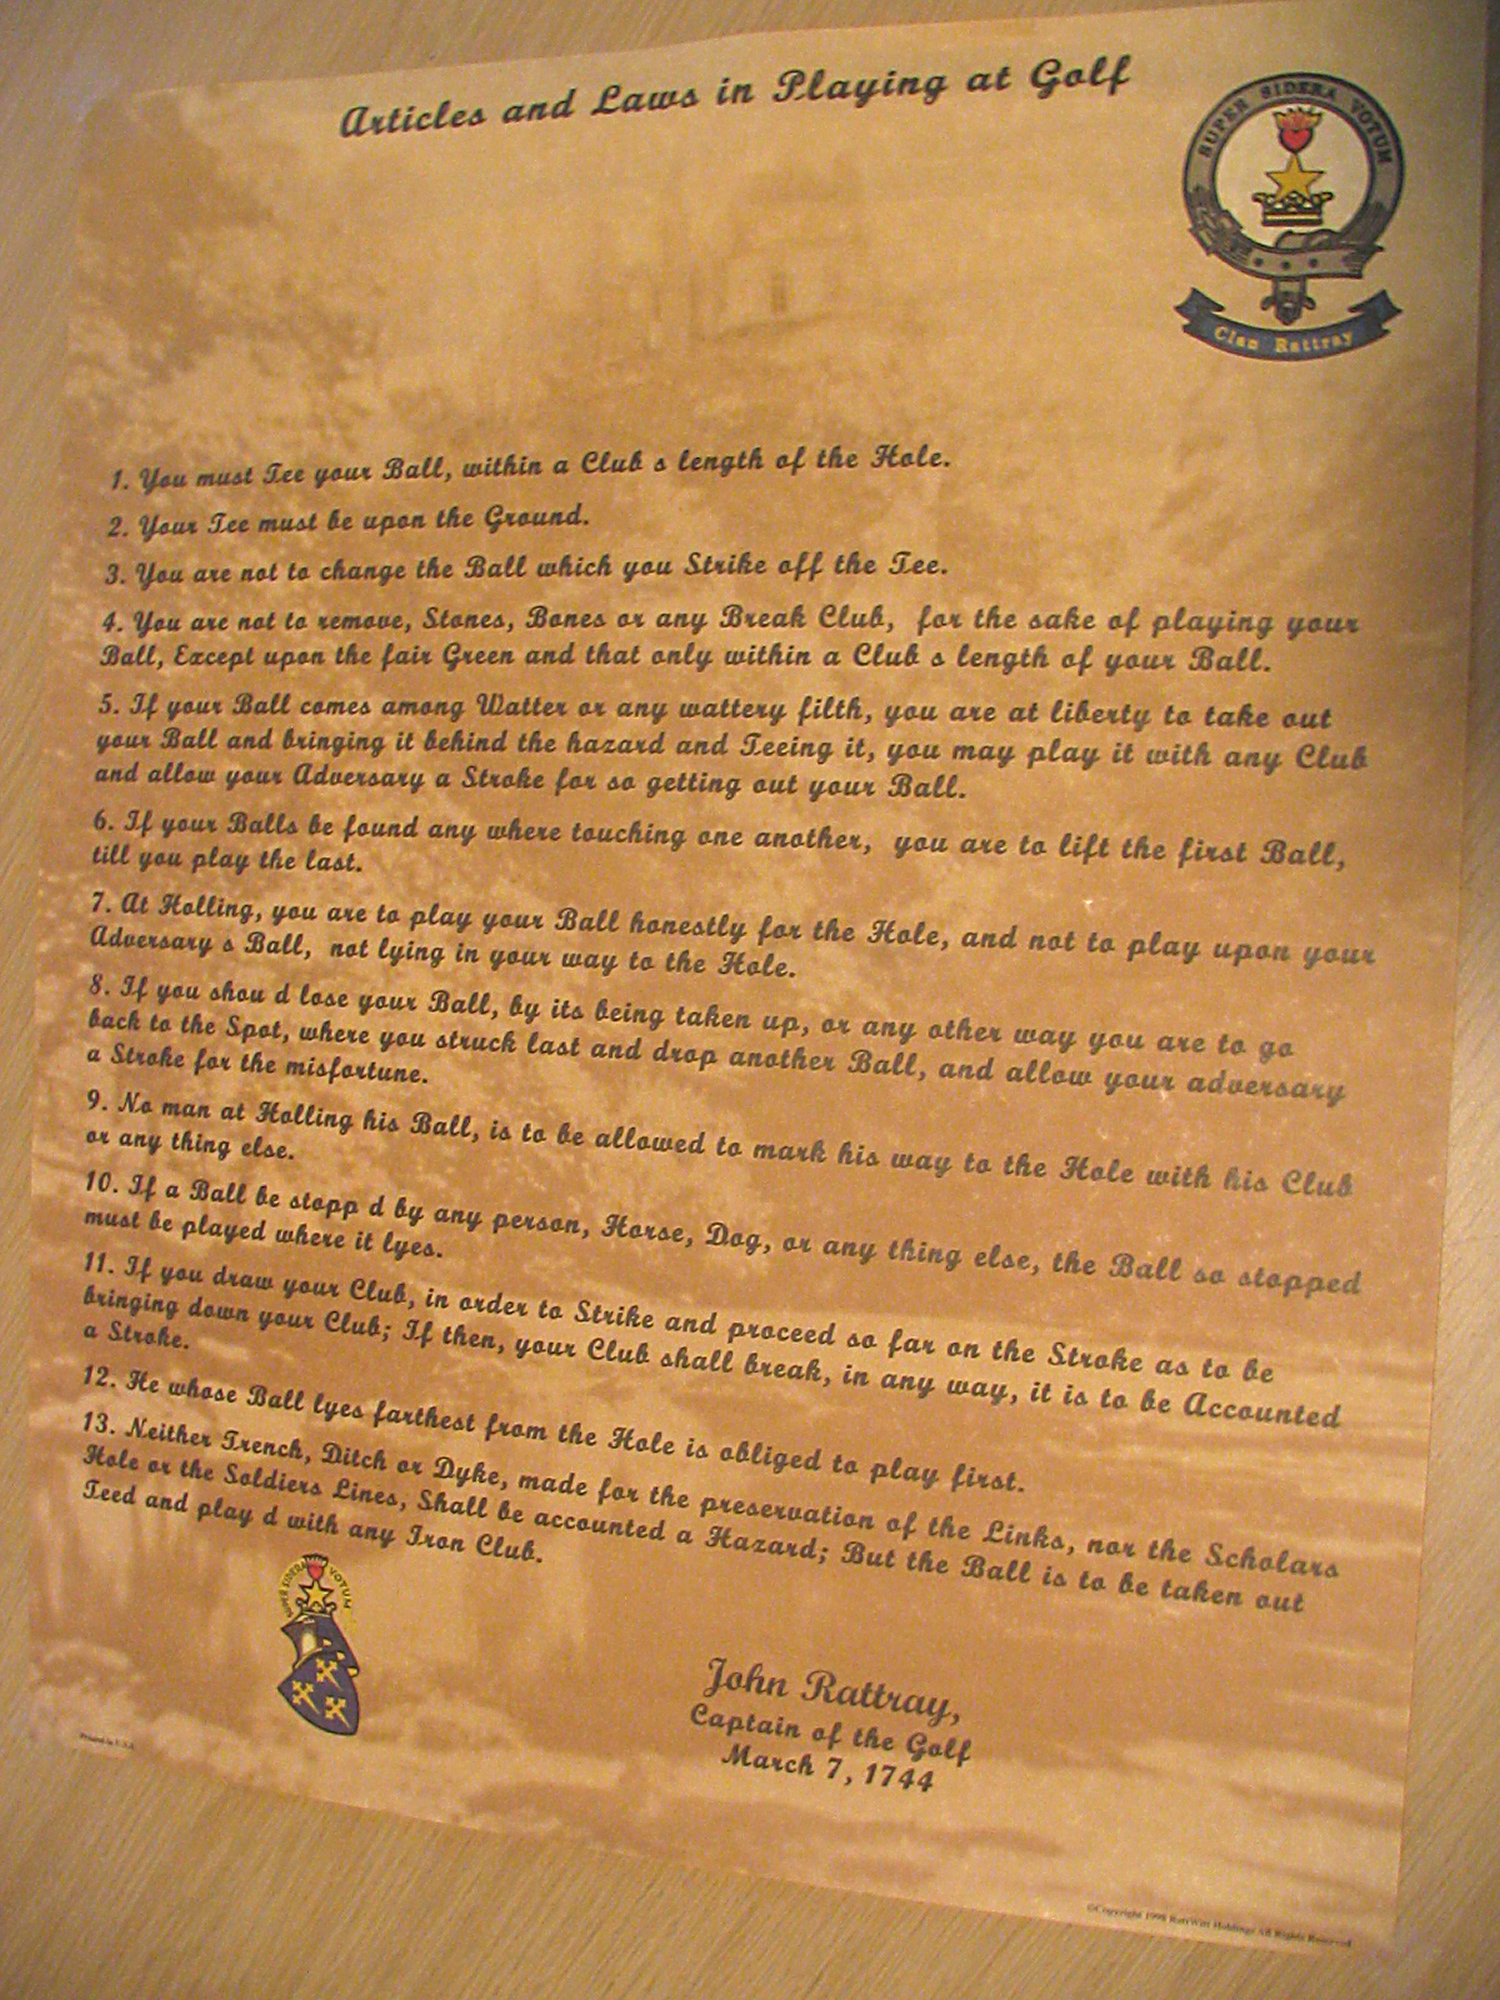 Articles and Laws in Playing at Golf
SUPER SIDERA VOTUM
Clan Rattray
1. You must Tee your Ball, within a Club s length of the Hole.
2. Your Tee must be upon the Ground.
3. You are not to change the Ball which you Strike off the Tee.
4. You are not to remove, Stones, Bones or any Break Club, for the sake of playing your
Ball, Except upon the fair Green and that only within a Club s length of your Ball.
5. If your Ball comes among Watter or any wattery filth, you are at liberty to take out
your Ball and bringing it behind the hazard and Teeing it, you may play it with any Club
and allow your Adversary a Stroke for so getting out your Ball.
6. If your Balls be found any where touching one another, you are to lift the first Ball,
till you play the last.
7. At Holling, you are to play your Ball honestly for the Hole, and not to play upon your
Adversary s Ball, not lying in your way to the Hole.
8. If you shou d lose your Ball, by its being taken up, or any other way you are to go
back to the Spot, where you struck last and drop another Ball, and allow your adversary
a Stroke for the misfortune.
9. No man at Holling his Ball, is to be allowed to mark his way to the Hole with his Club
or any thing else.
10. If a Ball be stopp d by any person, Horse, Dog, or any thing else, the Ball so stopped
must be played where it lyes.
11. If you draw your Club, in order to Strike and proceed so far on the Stroke as to be
bringing down your Club; If then, your Club shall break, in any way, it is to be Accounted
a Stroke.
12. He whose Ball lyes farthest from the Hole is obliged to play first.
13. Neither Trench, Ditch or Dyke, made for the preservation of the Links, nor the Scholars
Hole or the Soldiers Lines, Shall be accounted a Hazard; But the Ball is to be taken out
Teed and play d with any Iron Club.
SUPER SIDERA VOTUM
John Rattray,
Captain of the Golf
March 7, 1744
Printed in U.S.A.
©Copyright 1998 Holdings All Rights Reserved